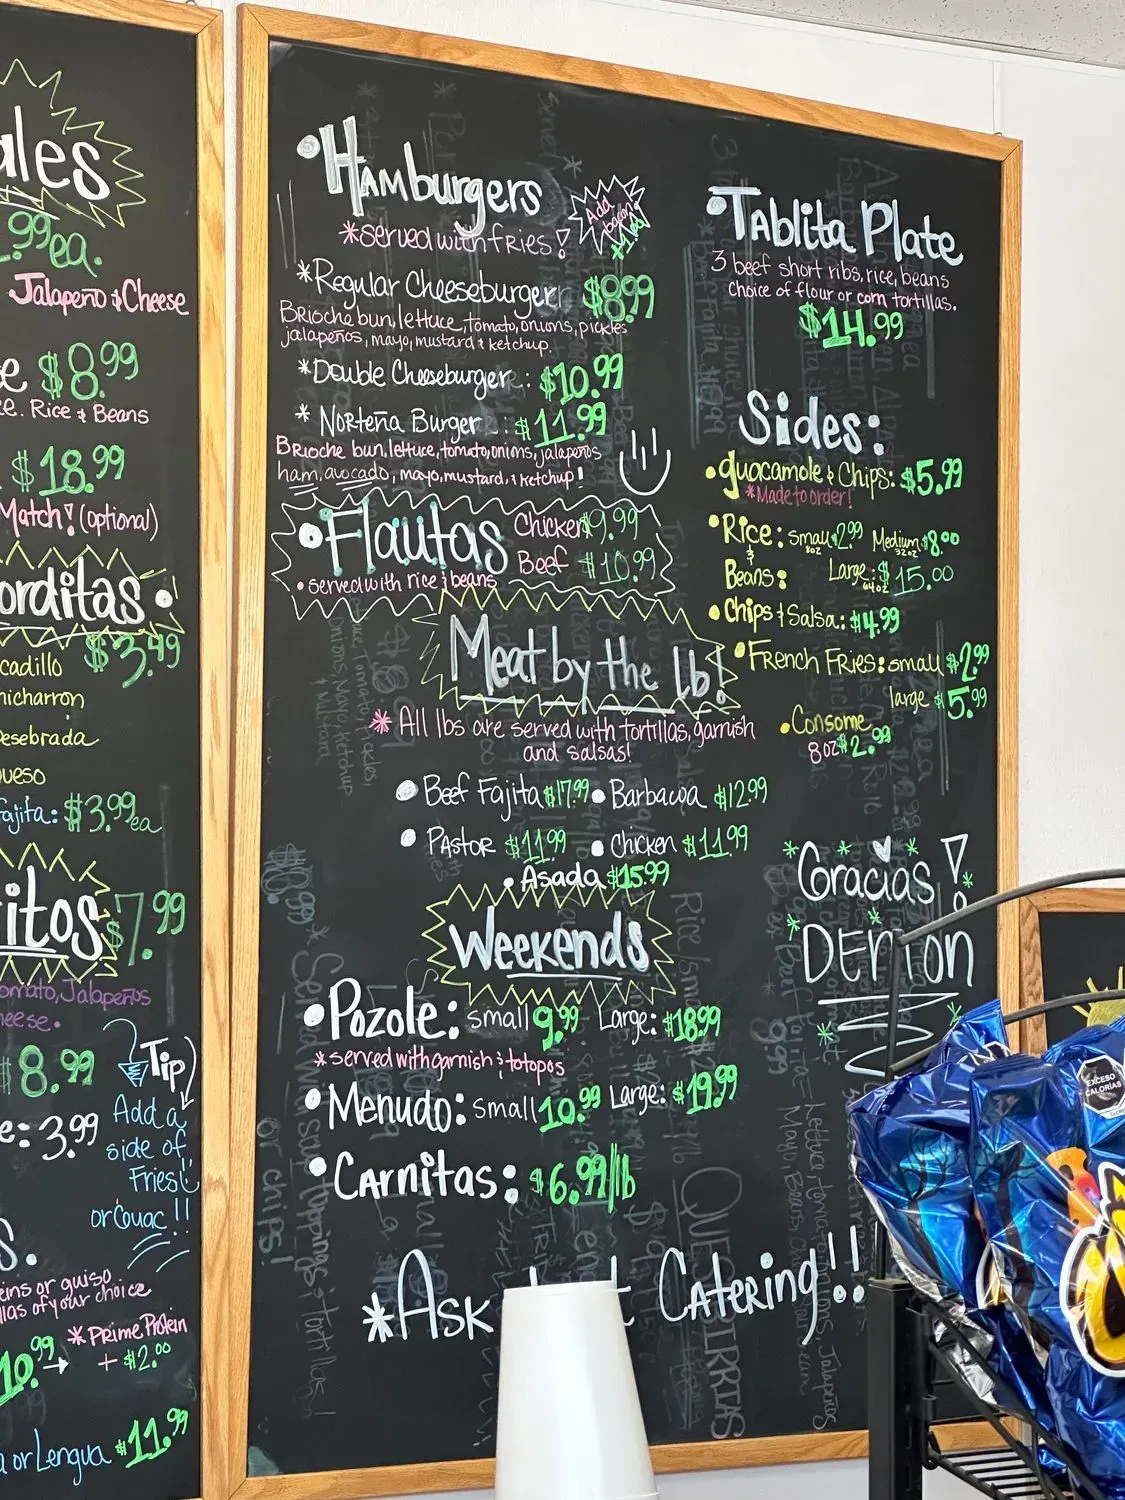 ales
.99ea.
Jalapeño & Cheese
e $8.99
ce. Rice & Beans
$18.99
Match! (optional)
orditas
$3.49
cadillo
hicharron
Desebrada
ueso
ajita: $3.99ea
itos $7.99
omato, Jalapeños
heese.
$8.99
e: 3.99
Tip
Add a
side of
Fries!
or Couac!!
s.
eins or guiso
llas of your choice
10.99 → * Prime Protein
+ $2.00
a or Lengua $11.99
• Hamburgers
Add
bacon
$1.00
*served with fries!
*Regular Cheeseburger $8.99
Brioche bun, lettuce, tomato, onions, pickles
jalapeños, mayo, mustard & ketchup.
*Double Cheeseburger: $10.99
* Norteña Burger: $11.99
Brioche bun, lettuce, tomato, onions, jalapeños
ham, avocado, mayo, mustard, & ketchup!
• Flautas Chicken $9.99
Beef $10.99
• served with rice & beans
Meat by the lb!
* All lbs are served with tortillas, garnish
and salsas!
• Beef Fajita $17.99 • Barbacoa $12.99
• Pastor $11.99 • Chicken $11.99
• Asada $15.99
Weekends
• Pozole: small 9.99 Large: $18.99
*served with garnish & totopos
• Menudo: small 10.99 Large: $19.99
• Carnitas: $6.99/lb
*Ask t Catering!!
• Tablita Plate
3 beef short ribs, rice, beans
choice of flour or corn tortillas.
$14.99
Sides:
• guacamole & Chips: $5.99
*Made to order!
• Rice: small $2.99 Medium $8.00
8oz 32oz
& Beans: Large: $15.00
64oz
• Chips & Salsa: $4.99
• French Fries: small $2.99
large $5.99
• Consome
8oz $2.99
Gracias!
DENTON
EXCESO
CALORÍAS